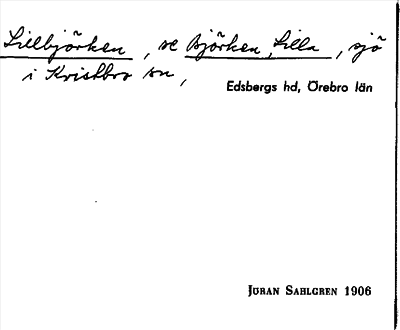 Lillbjörken, se Björken, Lilla, sjö
i Kvistbro sn,
Edsbergs hd, Örebro län
JÖRAN SAHLGREN 1906